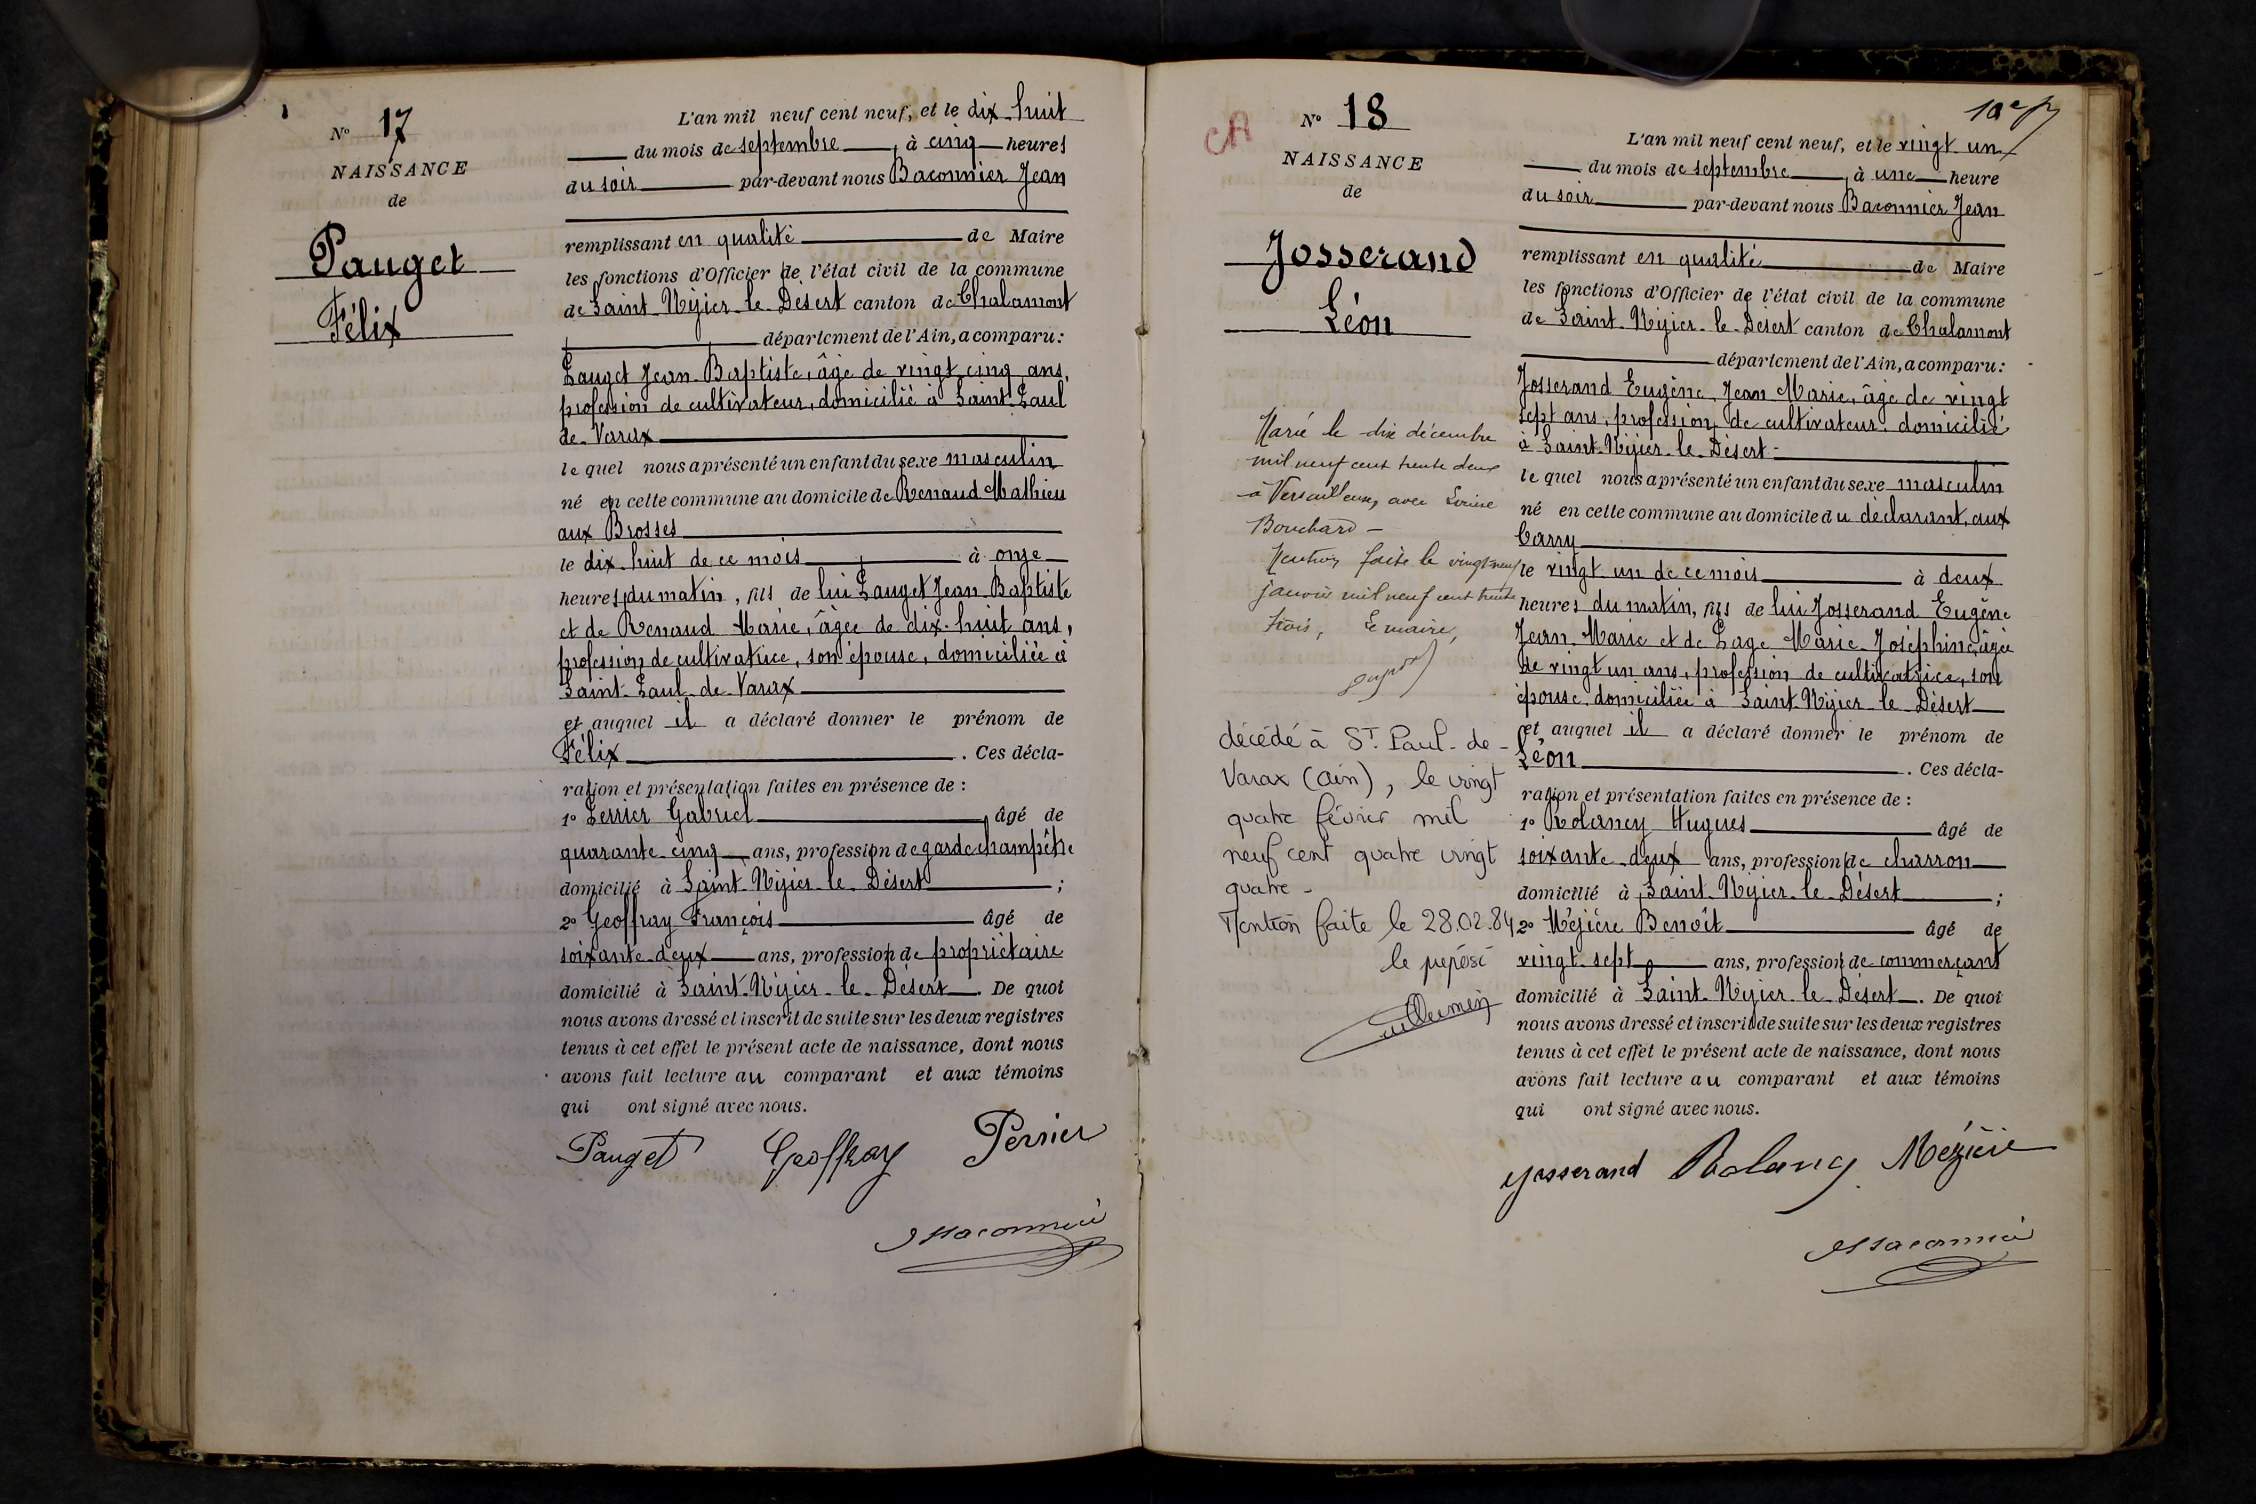 N° 17
NAISSANCE
de
Pauget
Félix
L'an mil neuf cent neuf, et le dix-huit
du mois de septembre, à cinq heures
du soir par-devant nous Baconnier Jean
remplissant en qualité de Maire
les fonctions d'Officier de l'état civil de la commune
de Saint-Nizier-le-Désert canton de Chalamont
département de l'Ain, a comparu:
Pauget Jean-Baptiste, âgé de vingt cinq ans,
profession de cultivateur, domicilié à Saint-Paul
de-Varax
le quel nous a présenté un enfant du sexe masculin
né en cette commune au domicile de Renaud Mathieu
aux Brosses
le dix-huit de ce mois à onze
heures du matin, fils de lui Pauget Jean-Baptiste
et de Renaud Marie, âgée de dix-huit ans,
profession de cultivatrice, son épouse, domiciliée à
Saint-Paul-de-Varax
et auquel il a déclaré donner le prénom de
Félix. Ces décla-
ration et présentation faites en présence de :
1° Perrier Gabriel, âgé de
quarante-cinq ans, profession de garde champêtre
domicilié à Saint-Nizier-le-Désert ;
2° Geoffray François âgé de
soixante-deux ans, profession de propriétaire
domicilié à Saint-Nizier-le-Désert. De quoi
nous avons dressé et inscrit de suite sur les deux registres
tenus à cet effet le présent acte de naissance, dont nous
avons fait lecture au comparant et aux témoins
qui ont signé avec nous.
Pauget Geoffray Perrier
JBaconnier
10e
CA
N° 18
NAISSANCE
de
Josserand
Léon
Marié le dix décembre
mil neuf cent trente deux
à Versailleux, avec Louise
Bouchard -
Mention faite le vingt-neuf
janvier mil neuf cent trente
trois, Le maire,
décédé à St. Paul-de-
Varax (Ain), le vingt
quatre février mil
neuf cent quatre vingt
quatre -
Mention faite le 28.02.84
le préposé
L'an mil neuf cent neuf, et le vingt-un
du mois de septembre, à une heure
du soir par-devant nous Baconnier Jean
remplissant en qualité de Maire
les fonctions d'Officier de l'état civil de la commune
de Saint-Nizier-le-Désert canton de Chalamont
département de l'Ain, a comparu:
Josserand Eugène, Jean Marie, âgé de vingt
sept ans, profession de cultivateur, domicilié
à Saint-Nizier-le-Désert -
le quel nous a présenté un enfant du sexe masculin
né en cette commune au domicile du déclarant, aux
Carry
le vingt un de ce mois à deux
heures du matin, fils de lui Josserand Eugène
Jean-Marie et de Page Marie-Joséphine, âgée
de vingt un ans, profession de cultivatrice, son
épouse, domiciliée à Saint-Nizier-le-Désert
et auquel il a déclaré donner le prénom de
Léon. Ces décla-
ration et présentation faites en présence de :
1° Rolancy Hugues âgé de
soixante-deux ans, profession de charron
domicilié à Saint-Nizier-le-Désert ;
2° Mézière Benoît âgé de
vingt-sept ans, profession de commerçant
domicilié à Saint-Nizier-le-Désert. De quoi
nous avons dressé et inscrit de suite sur les deux registres
tenus à cet effet le présent acte de naissance, dont nous
avons fait lecture au comparant et aux témoins
qui ont signé avec nous.
Josserand Rolancy Mézière
JBaconnier